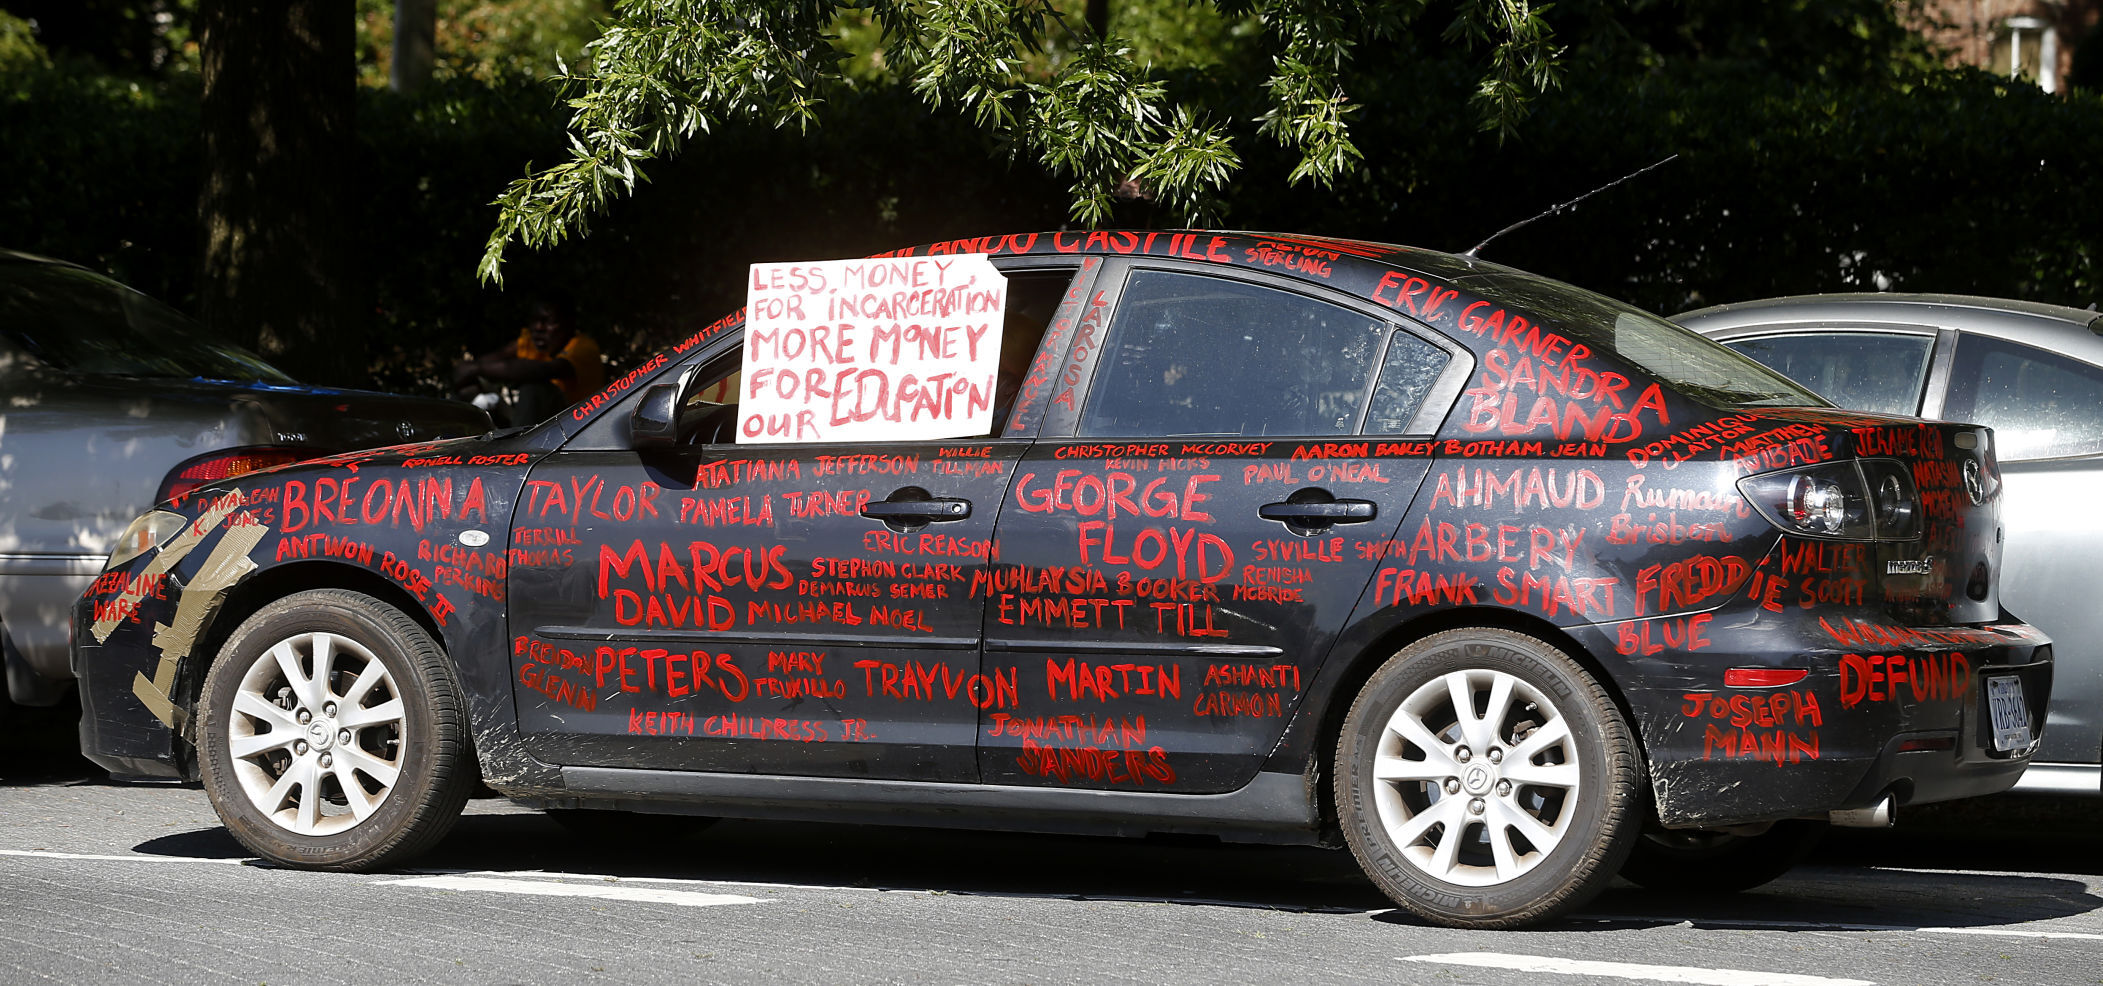 LESS MONEY
FOR INCARCERATION
MORE MONEY
FOR EDUCATION
OUR
CASTILE
STERLING
ERIC GARNER
SANDRA
BLAND
CHRISTOPHER WHITFIELD
LAROSA
RONELL FOSTER
ATATIANA JEFFERSON
WILLIE
TILLMAN
CHRISTOPHER MCCORVEY
KEVIN HICKS
AARON BAILEY
BOTHAM JEAN
DOMINIQUE
CLAYTON
PAUL O'NEAL
K. JONES
BREONNA TAYLOR
PAMELA TURNER
GEORGE
FLOYD
AHMAUD
ARBERY
Brisbon
ANTWON ROSE II
RICHARD
PERKINS
TERRILL
THOMAS
MARCUS
DAVID
PETERS
ERIC REASON
STEPHON CLARK
DEMARCUS SEMER
MICHAEL NOEL
MUHLAYSIA BOOKER
EMMETT TILL
SYVILLE SMITH
RENISHA
MCBRIDE
FRANK SMART
FREDDIE
BLUE
WALTER
SCOTT
WARE
BRENDON
GLENN
MARY
TRUXILLO
TRAYVON MARTIN
ASHANTI
CARMON
KEITH CHILDRESS JR.
JONATHAN
SANDERS
JOSEPH
MANN
DEFUND
MICHELIN
MICHELIN